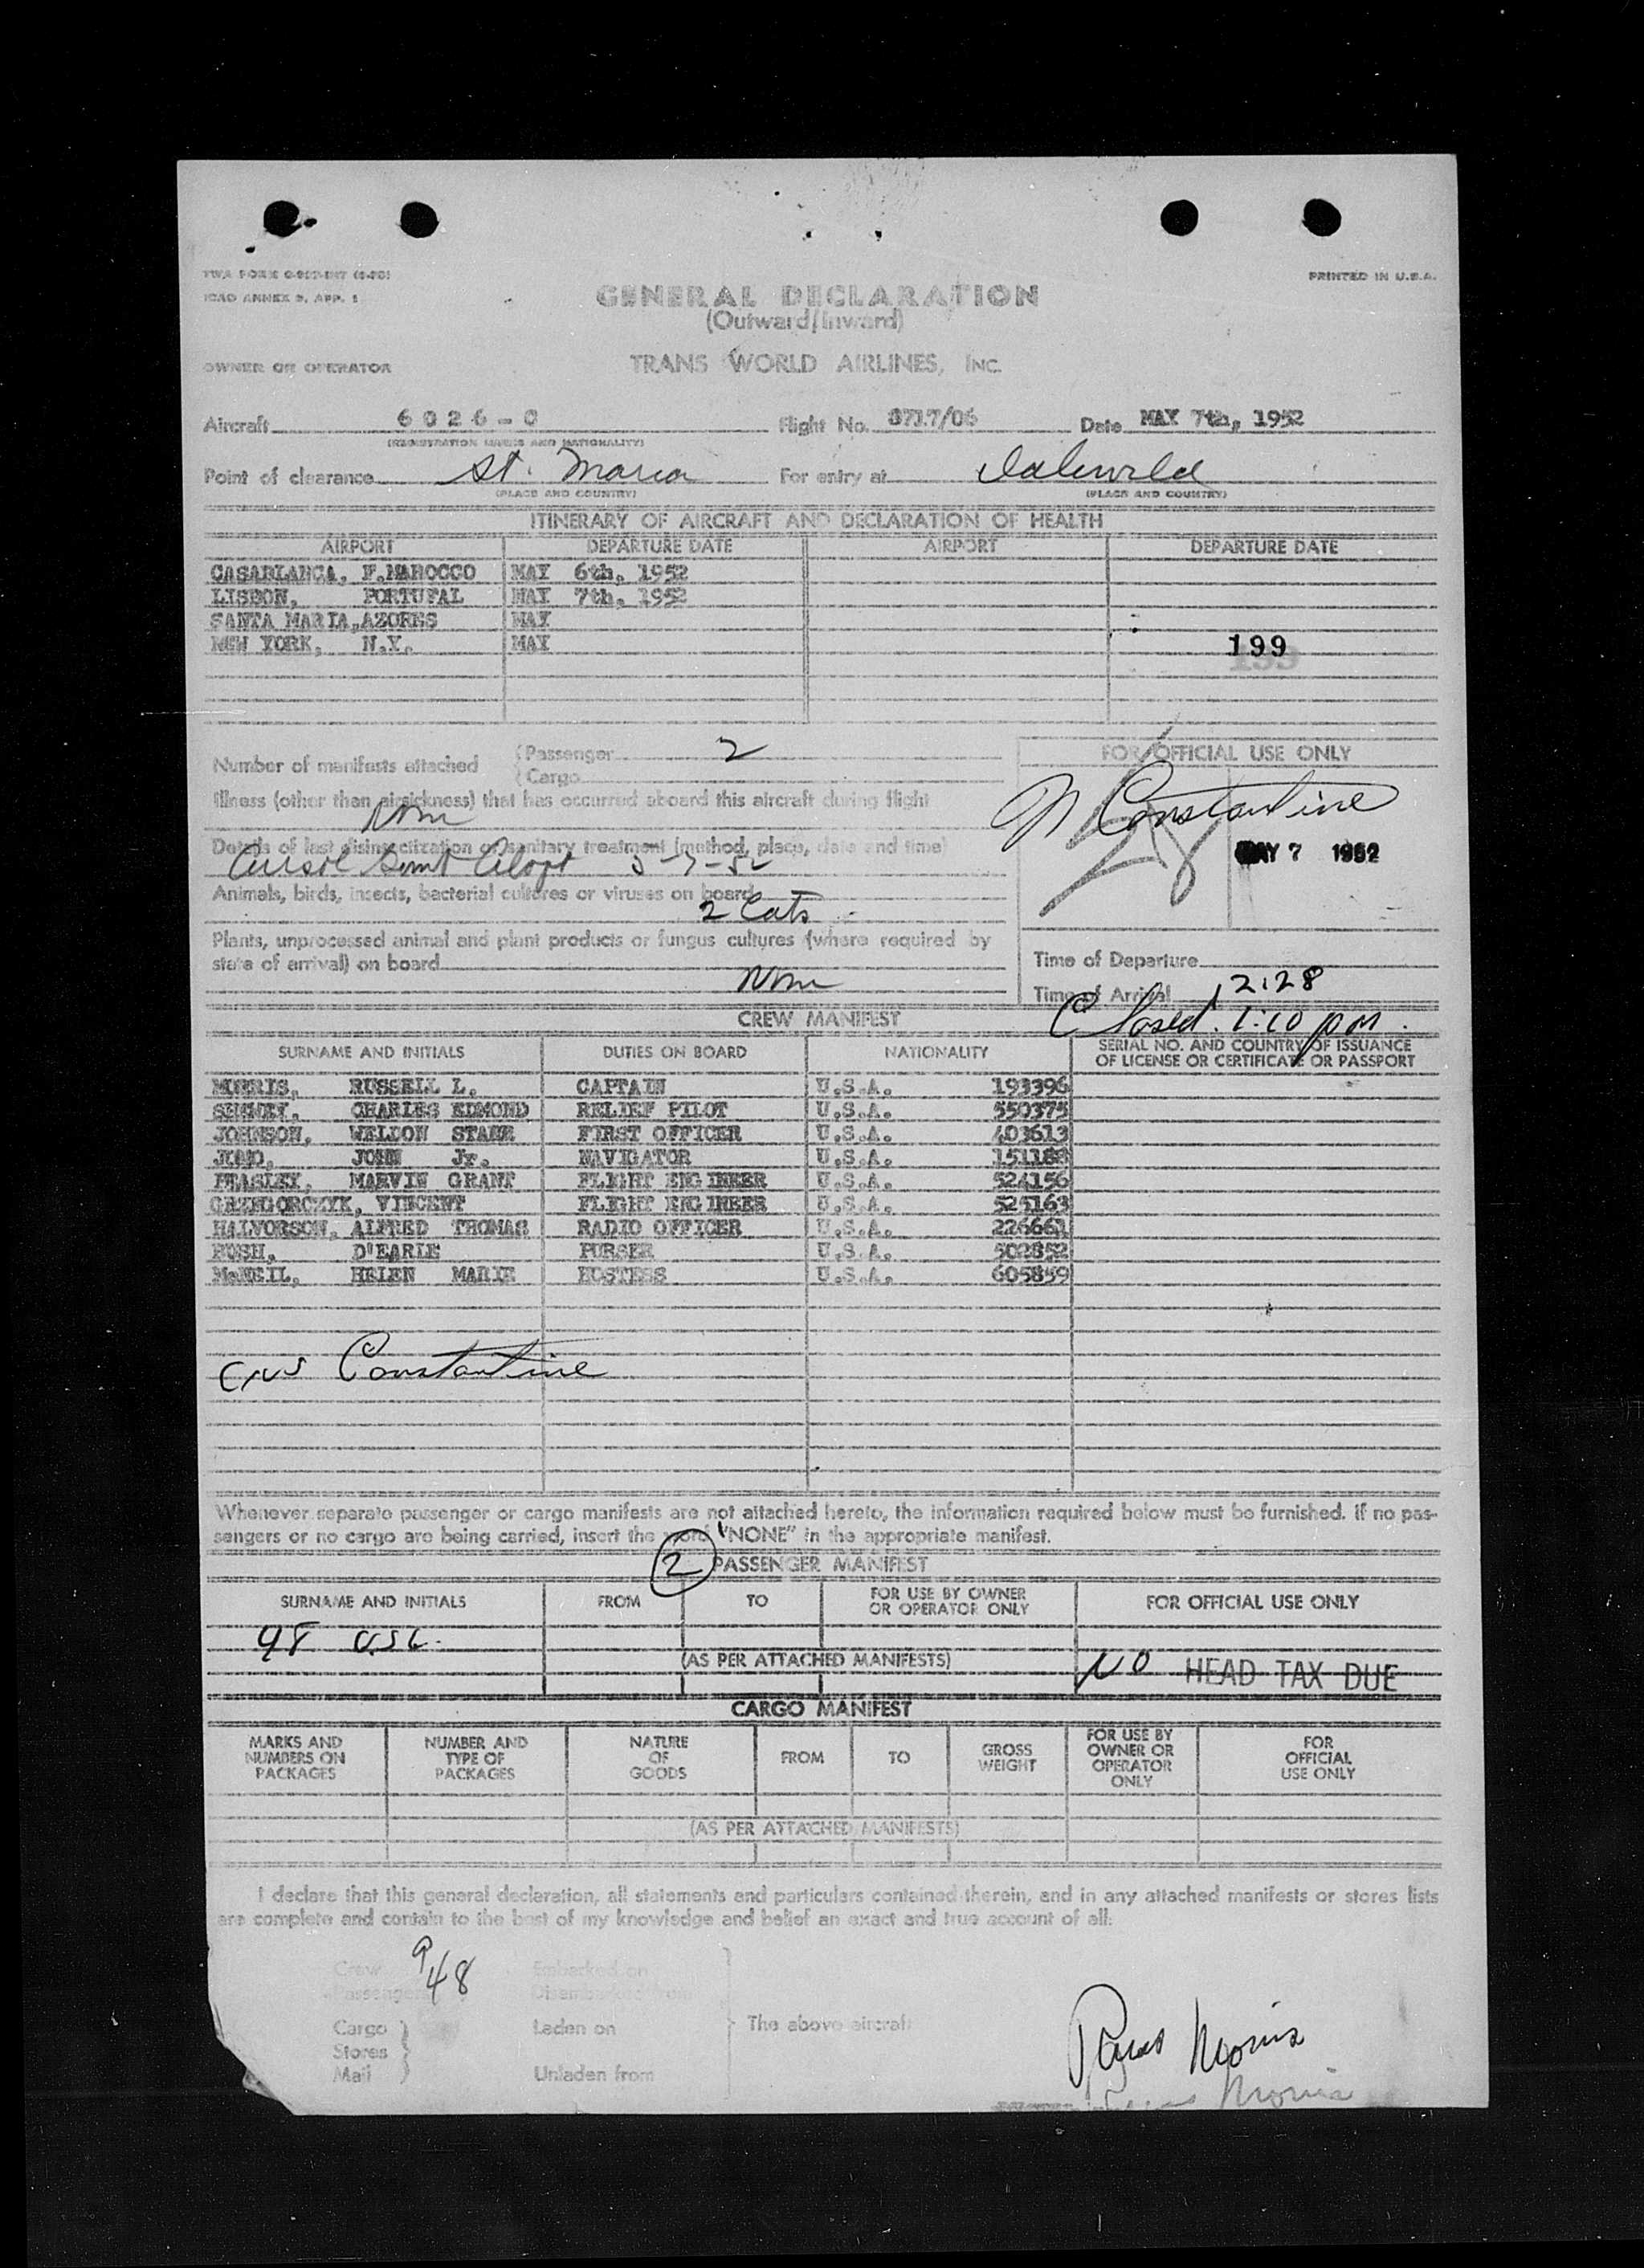 TWA FORM
PRINTED IN U.S.A.
ICAO ANNEX 9, APP. 1
GENERAL DECLARATION
(Outward/Inward)
OWNER OR OPERATOR TRANS WORLD AIRLINES, INC.
Aircraft 6026-C Flight No. 8717/06 Date MAY 7th, 1952
(REGISTRATION MARKS AND NATIONALITY)
Point of clearance St. Maria For entry at Idlewild
(PLACE AND COUNTRY) (PLACE AND COUNTRY)
ITINERARY OF AIRCRAFT AND DECLARATION OF HEALTH
AIRPORT DEPARTURE DATE AIRPORT DEPARTURE DATE
CASABLANCA, F.MAROCCO MAY 6th, 1952
LISBON, PORTUFAL MAY 7th, 1952
SANTA MARIA,AZORES MAY
NEW YORK, N.Y. MAY 199
Number of manifests attached (Passenger 2
(Cargo
FOR OFFICIAL USE ONLY
Illness (other than airsickness) that has occurred aboard this aircraft during flight
None
Constantine
Details of last disinsectization or sanitary treatment (method, place, date and time)
5-7-52
MAY 7 1952
Animals, birds, insects, bacterial cultures or viruses on board
2 Cats
Plants, unprocessed animal and plant products or fungus cultures (where required by
state of arrival) on board
None
Time of Departure
Time of Arrival 12:28
Closed. 1:10 pm.
CREW MANIFEST
SURNAME AND INITIALS DUTIES ON BOARD NATIONALITY SERIAL NO. AND COUNTRY OF ISSUANCE
OF LICENSE OR CERTIFICATE OR PASSPORT
MORRIS, RUSSELL L. CAPTAIN U.S.A. 193396
CHARLES EDMOND RELIEF PILOT U.S.A. 550375
JOHNSON, WELDON STARR FIRST OFFICER U.S.A. 403613
JOHN Jr. NAVIGATOR U.S.A. 151188
PEASLEY, MARVIN GRANT FLIGHT ENGINEER U.S.A. 524156
GRZEGORCZYK, VINCENT FLIGHT ENGINEER U.S.A. 525163
HALVORSON, ALFRED THOMAS RADIO OFFICER U.S.A. 226661
D'EARLE PURSER U.S.A. 502852
McNEIL, HELEN MARIE HOSTESS U.S.A. 605859
Constantine
Whenever separate passenger or cargo manifests are not attached hereto, the information required below must be furnished. If no pas-
sengers or no cargo are being carried, insert the word "NONE" in the appropriate manifest.
2 PASSENGER MANIFEST
SURNAME AND INITIALS FROM TO FOR USE BY OWNER
OR OPERATOR ONLY FOR OFFICIAL USE ONLY
48 USC.
(AS PER ATTACHED MANIFESTS)
NO HEAD TAX DUE
CARGO MANIFEST
MARKS AND
NUMBERS ON
PACKAGES
NUMBER AND
TYPE OF
PACKAGES
NATURE
OF
GOODS
FROM
TO
GROSS
WEIGHT
FOR USE BY
OWNER OR
OPERATOR
ONLY
FOR
OFFICIAL
USE ONLY
(AS PER ATTACHED MANIFESTS)
I declare that this general declaration, all statements and particulars contained therein, and in any attached manifests or stores lists
are complete and contain to the best of my knowledge and belief an exact and true account of all:
Crew 9 Embarked on
Passengers 48 Disembarked from
Cargo Laden on The above aircraft
Stores
Mail Unladen from
Russ Morris
Morris